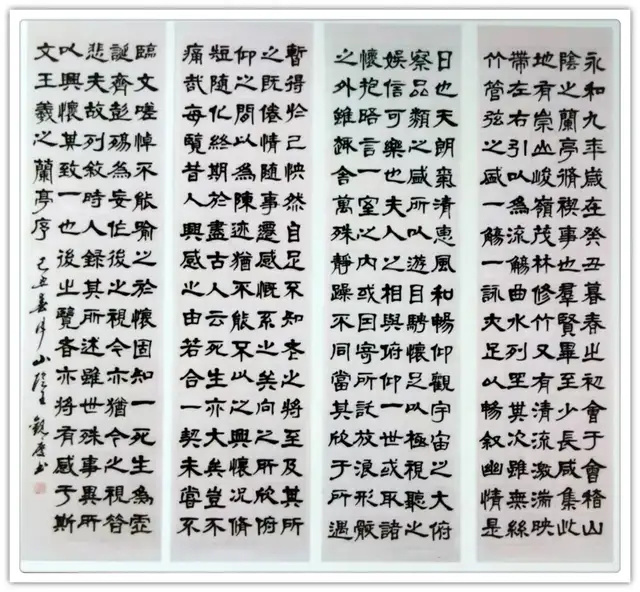 永和九年歲在癸丑暮春之初會于會稽山
陰之蘭亭脩禊事也羣賢畢至少長咸集此
地有崇山峻嶺茂林修竹又有清流激湍映
帶左右引以為流觴曲水列坐其次雖無絲
竹管弦之盛一觴一詠亦足以暢叙幽情是
日也天朗氣清惠風和暢仰觀宇宙之大俯
察品類之盛所以遊目騁懷足以極視聽之
娛信可樂也夫人之相與俯仰一世或取諸
懷抱晤言一室之內或因寄所託放浪形骸
之外雖趣舍萬殊靜躁不同當其欣于所遇
暫得於己怏然自足不知老之將至及其所
之既倦情隨事遷感慨系之矣向之所欣俯
仰之間以為陳迹猶不能不以之興懷況脩
短隨化終期於盡古人云死生亦大矣豈不
痛哉每覽昔人興感之由若合一契未嘗不
臨文嗟悼不能喻之於懷固知一死生為虛
誕齊彭殤為妄作後之視今亦猶今之視昔
悲夫故列敘時人錄其所述雖世殊事異所
以興懷其致一也後之覽者亦將有感于斯
文王羲之蘭亭序 己丑春月山陰王